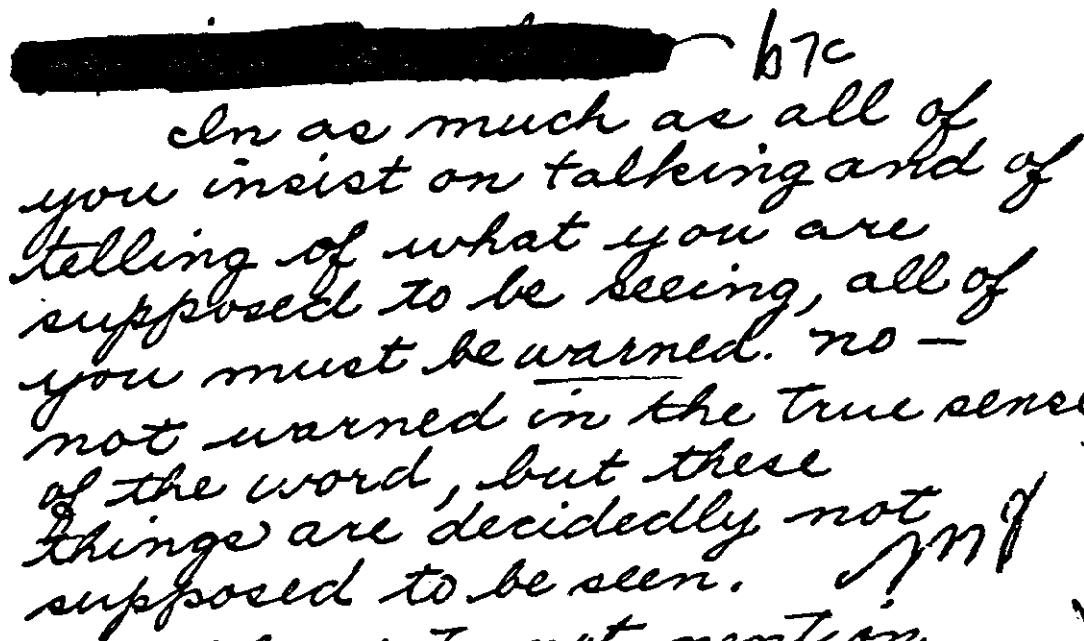 b7c
In as much as all of
you insist on talking and of
telling of what you are
supposed to be seeing, all of
you must be warned. no —
not warned in the true sense
of the word, but these
things are decidedly not
supposed to be seen.
not mention